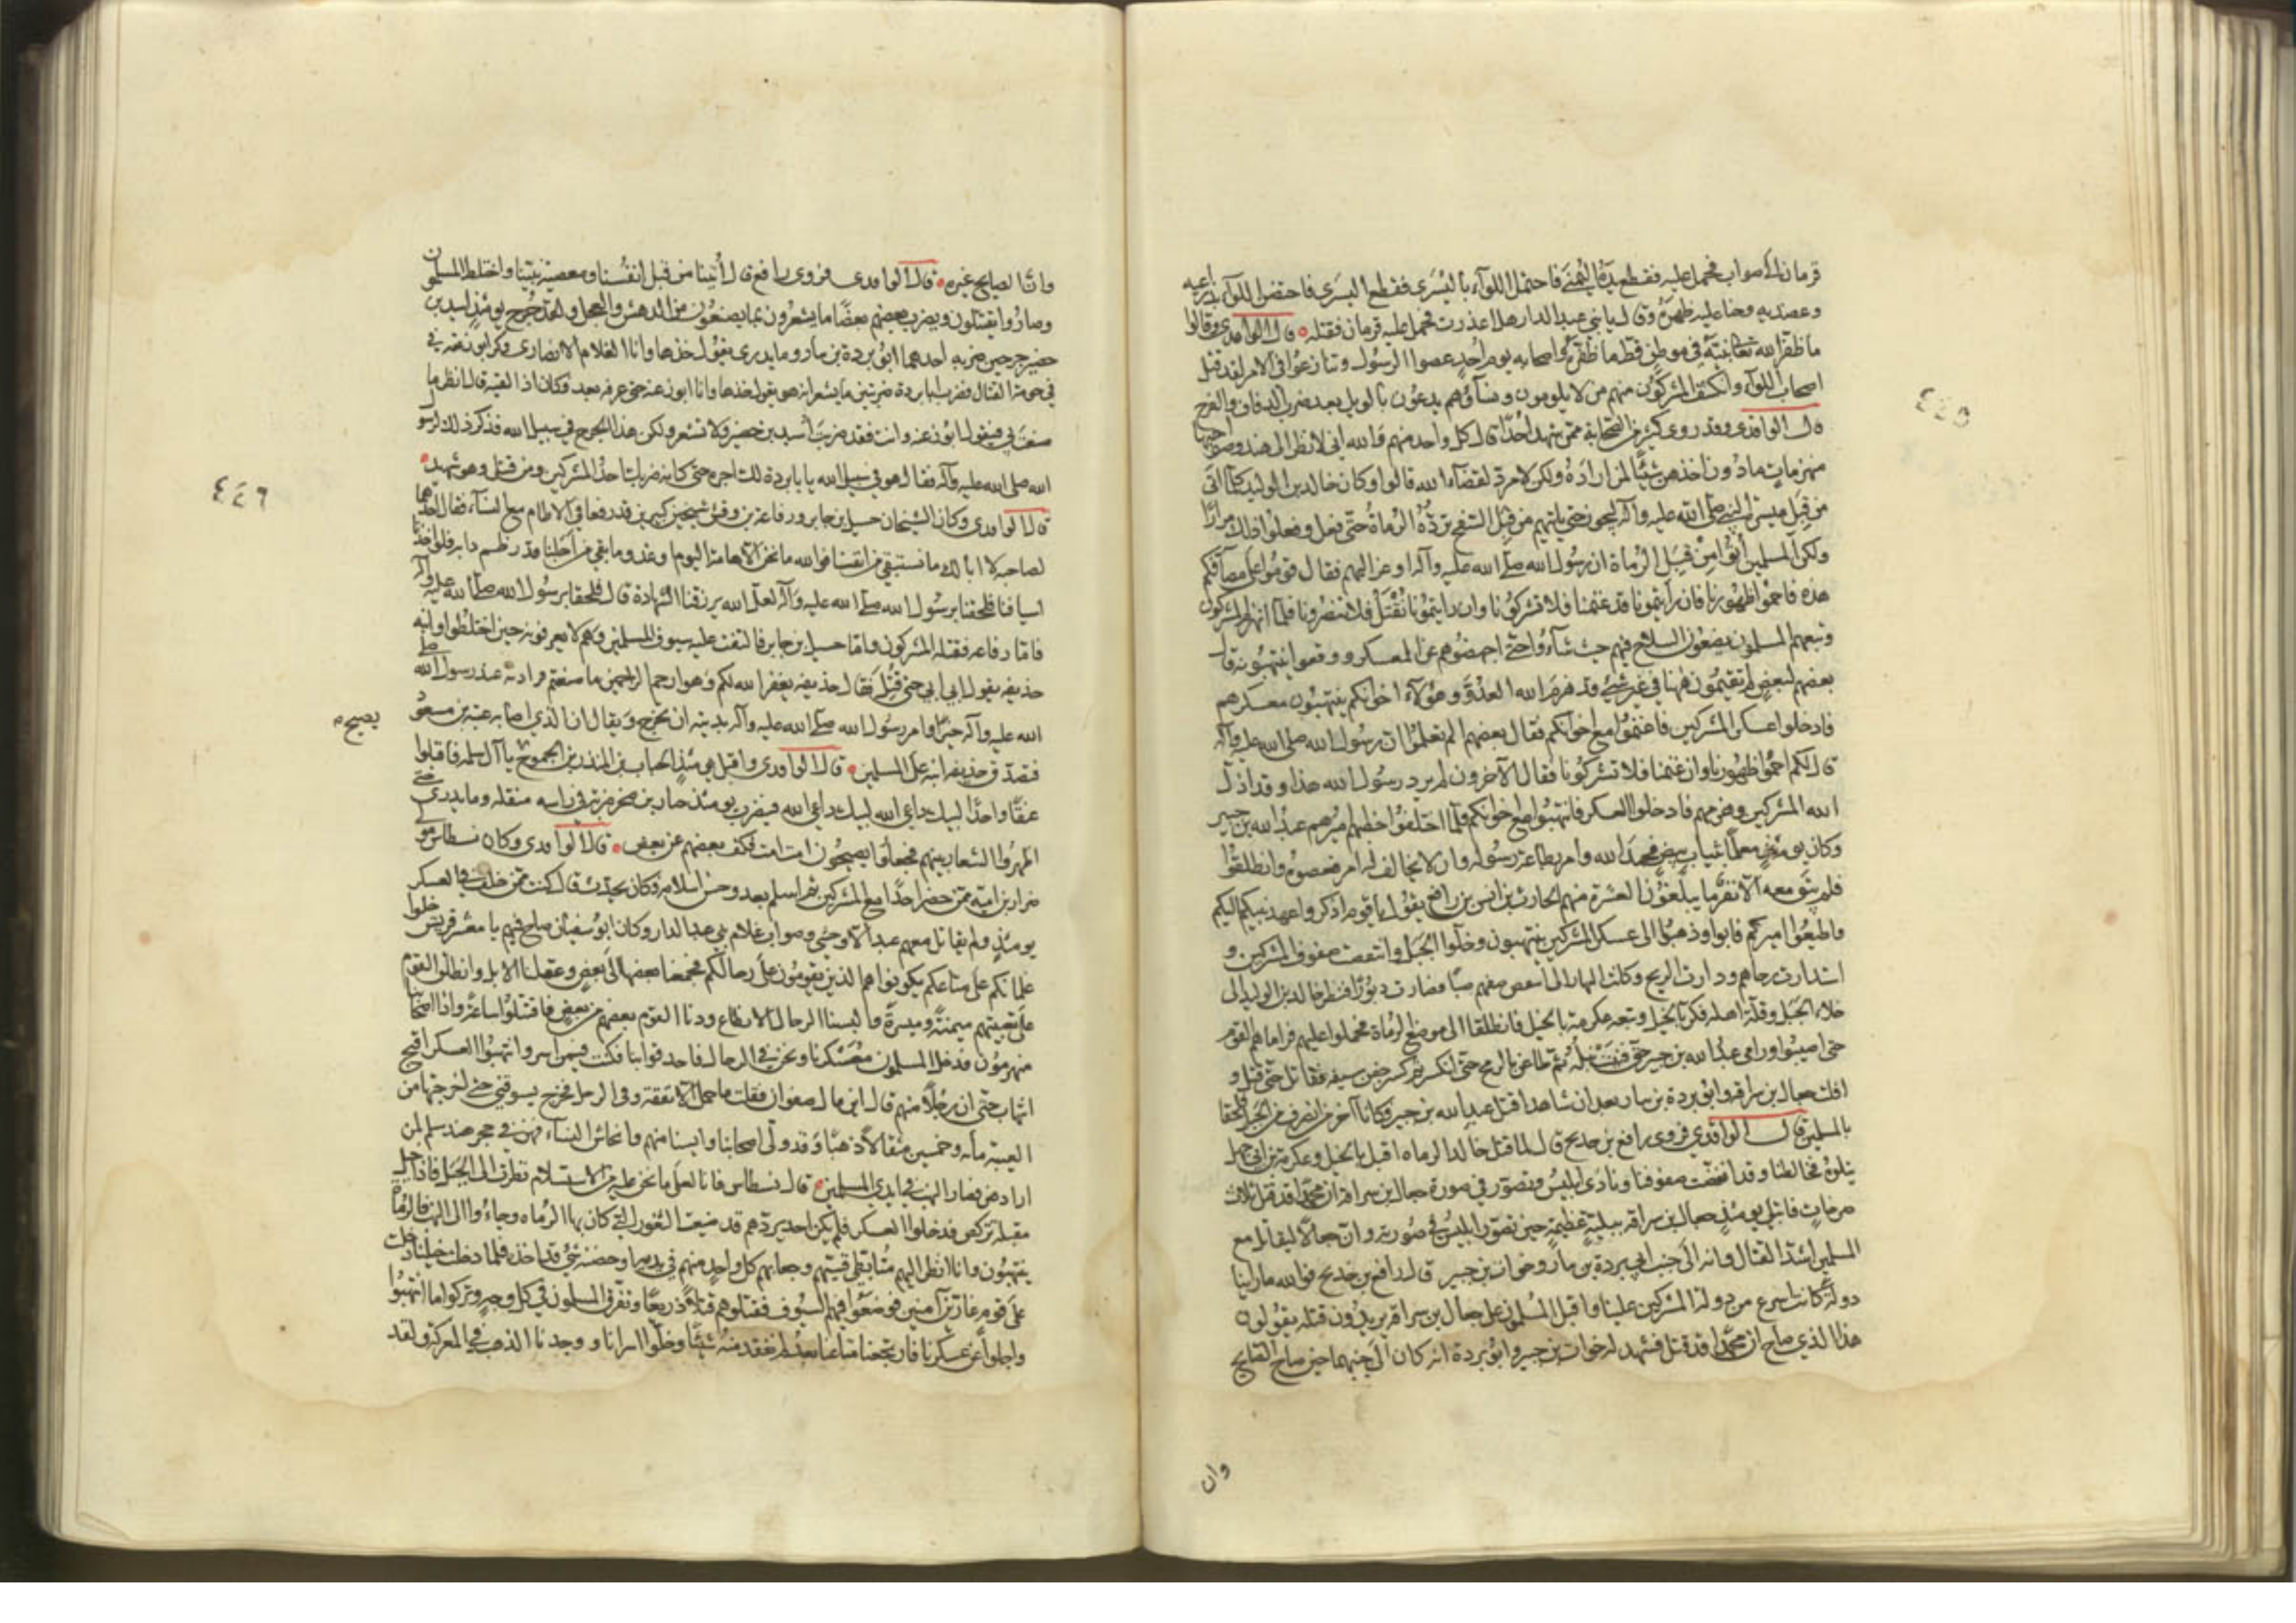 ٤٤٥
قزمان الى صواب فحمل عليه فقطع يده اليمنى فاحتمل اللوآء باليسرى فقطع اليسرى فاحتضن اللوآء بذراعيه
وعضديه وحنا عليه ظهره وقال يا بني عبد الدار هل اعذرت فحمل عليه قزمان فقتله قال الواقدي وقالوا
ما ظفر الله تعالى نبيه في موطن قط ما ظفره واصحابه يوم احد حتى عصوا الرسول وتنازعوا في الامر لقد قتل
اصحاب اللوآء وانكشف المشركون منهم من لا يلوون ونسآؤهم يدعون بالويل بعد ضرب الدفاف والفرح
قال الواقدي وقد روى كثير من الصحابة ممن شهد احدا قال كل واحد منهم والله اني لانظر الى هند وصواحبها
منهزمات ما دون اخذهن شيئا لمن اراده ولكن لا مرد لقضآء الله قالوا وكان خالد بن الوليد كلما اتى
من قبل ميسرة النبي صلى الله عليه وآله ليجوز حتى ياتيهم من قبل السفح تردّه الرماة حتى فعل وفعلوا ذلك مرارا
ولكن المسلمين أتوا من قبل الرماة ان رسول الله صلى الله عليه وآله اوعز اليهم فقال قوموا على مصافكم
هذه فاحموا ظهورنا فان رأيتمونا قد غنمنا فلا تشركونا وان رايتمونا نقتل فلا تنصرونا فلما انهزم المشركون
وتبعهم المسلمون يضعون السلاح فيهم حيث شآءوا حتى اجهضوهم عن المعسكر ووقعوا ينتهبونه قال
بعضهم لبعض لم تقيمون ههنا في غير شيئ قد هزم الله العدو وهؤلآء اخوانكم ينتهبون معسكرهم
فادخلوا عسكر المشركين فاغنموا مع اخوانكم فقال بعضهم الم تعلموا ان رسول الله صلى الله عليه وآله
قال لكم احموا ظهورنا وان غنمنا فلا تشركونا فقال الآخرون لم يرد رسول الله هذا وقد اذل
الله المشركين وهزمهم فادخلوا العسكر فانتهبوا مع اخوانكم فلما اختلفوا خطبهم اميرهم عبد الله بن جبير
وكان يومئذ معلما بثياب بيض فحمد الله وامر بطاعة رسوله وان لا يخالف له امر فعصوه وانطلقوا
فلم يبق معه الا نفر ما يبلغون العشرة منهم الحارث بن انس بن رافع يقول يا قوم اذكروا عهد نبيكم اليكم
واطيعوا اميركم فابوا وذهبوا الى عسكر المشركين ينتهبون وخلوا الجبل وانتقضت صفوف المشركين و
استدارت رحاهم ودارت الريح وكانت النهار الى انتقض صفهم صبا فصارت دبورا فنظر خالد بن الوليد الى
خلاء الجبل وقلة اهله فكر بالخيل وتبعه عكرمة بالخيل فانطلقا الى موضع الرماة فحملوا عليهم فراماهم القوم
حتى اصيبوا ورامى عبد الله بن جبير حتى فنيت نبله ثم طاعن بالرمح حتى انكسر ثم كسر جفن سيفه فقاتل حتى قتل و
افلت جعال بن سراقة وابو بردة بن نيار بعد ان شاهدا قتل عبد الله بن جبير وكانا آخر من انصرف من الجبل فلحقا
بالمسلمين قال الواقدي فروى رافع بن خديج قال لما قتل خالد الرماه اقبل بالخيل وعكرمة بن ابي جهل
يتلوه فخالطنا وقد انتقضت صفوفنا ونادى ابليس وتصور في صورة جعال بن سراقة ان محمدا قد قتل ثلاث
صرخات فابتلي يومئذ جعال بن سراقه ببلية عظيمة حين تصور ابليس في صورته وان جعالا ليقاتل مع
المسلمين اشد القتال وانه الى جنب ابي بردة بن نيار وخوات بن جبير قال رافع بن خديج فوالله ما راينا
دولة كانت اسرع من دولة المشركين علينا واقبل المسلمون على جعال بن سراقة يريدون قتله يقولون
هذا الذي صاح ان محمدا قد قتل فشهد له خوات بن جبير وابو بردة انه كان الى جنبهما حين صاح الصايح
وان
٤٤٦
وان الصايح غيره قال الواقدي فروى رافع قال أتينا من قبل انفسنا ومعصية نبينا واختلط المسلمون
وصاروا يقتتلون ويضرب بعضهم بعضا ما يشعرون بما يصنعون من الدهش والعجل ولقد جرح يومئذ اسيد بن
حضير جرحين ضربه احدهما ابو بردة بن نيار وما يدري يقول خذها وانا الغلام الانصاري وكر ابو زعنة في
في حومة القتال فضرب ابا بردة ضربتين ما يشعر انه هو يقول خذها وانا ابو زعنة حتى عرفه بعد فكان اذا لقيه قال انظر ما
صنعت بي فيقول ابو زعنه وانت فقد ضربت أسيد بن حضير ولا تشعر ولكن هذا الجرح في سبيل الله فذكر ذلك لرسو
الله صلى الله عليه وآله فقال هو في سبيل الله يا با بردة لك اجره حتى كانه ضربك احد المشركين ومن قتل فهو شهيد
قال الواقدي وكان الشيخان حسيل بن جابر ورفاعة بن وقش شيخين كبيرين قد رفعا في الاطام مع النسآء فقال احدهما
لصاحبه لا ابا لك ما نستبقي من انفسنا فوالله ما نحن الا هامة اليوم او غد وما بقي من اجلنا قدر ظمء دابة فلو اخذنا
اسيافنا فلحقنا برسول الله صلى الله عليه وآله لعل الله يرزقنا الشهادة قال فلحقا برسول الله صلى الله عليه وآله
فاما رفاعه فقتله المشركون واما حسيل بن جابر فالتفت عليه سيوف المسلمين وهم لا يعرفونه حين اختلطوا وابنه
حذيفه يقول ابي ابي حتى قتل فقال حذيفه يغفر الله لكم وهو ارحم الراحمين ما صنعتم فزادته عند رسول الله صلى
الله عليه وآله خيرا وامر رسول الله صلى الله عليه وآله بديته ان تخرج ويقال ان الذي اصابه عتبة بن مسعود
فتصدق حذيفه ابنه على المسلمين قال الواقدي واقبل يومئذ الحباب بن المنذر بن الجموح يا آل سلمه فاقبلوا
يصيح
عنقا واحدا لبيك داعي الله لبيك داعي الله فيضرب يومئذ جبار بن صخر ضربة في راسه مثقله وما يدري حتى
اظهروا الشعار بينهم فجعلوا يصيحون امت امت فكف بعضهم عن بعض قال الواقدي وكان نسطاس مولى
ضرار بن امية ممن حضر احدا مع المشركين ثم اسلم بعد وحسن اسلامه فكان يحدث قال كنت ممن خلف في العسكر
يومئذ ولم يقاتل معهم عبد الا وحشي وصواب غلام بني عبد الدار وكان ابو سفيان صاح فيهم يا معشر قريش خلوا
غلمانكم على متاعكم يكونوا هم الذين يقومون على رحالكم فجمعنا بعضها الى بعض وعقلنا الابل وانطلق القوم
على تعبيتهم ميمنة وميسرة والبسنا الرحال الانطاع ودنا القوم بعضهم من بعض فاقتتلوا ساعة واذا اصحابنا
منهزمون فدخل المسلمون معسكرنا ونحن في الرحال فاحدقوا بنا فكنت فيمن اسر وانتهبوا العسكر اقبح
انتهاب حتى ان رجلا منهم قال اين مال صفوان فقلت ما حمل الا نفقة وفي الرحل فخرج يسوقني حتى اخرجتها من
العيبة مائة وخمسين مثقالا ذهبا وقد ولى اصحابنا وايسنا منهم وانحاش النسآء فهن في حجر هند سلم لمن
اراد من فصار النهب في ايدي المسلمين قال نسطاس فانا لعلى ما نحن عليه من الاستسلام نظرت الى الجبل فاذا خيل
مقبلة تركض فدخلوا العسكر فلم يكن احد يردهم قد ضيعت الثغور التي كان بها الرماه وجاءوا الى النهب فالرماة
ينتهبون وانا انظر اليهم متأبطي قسيهم وجعابهم كل واحد منهم في يديه او حضنه شئ قد اخذه فلما دخلت خيلنا دخلت
على قوم غارين آمنين فوضعوا فيهم السيوف فقتلوهم قتلا ذريعا وتفرق المسلمون في كل وجه وتركوا ما انتهبوا
واجلوا عن عسكرنا فارتجعنا متاعنا بعد لم نفقد منه شيئا وخلوا اسرانا ووجدنا الذهب في المعركة ولقد